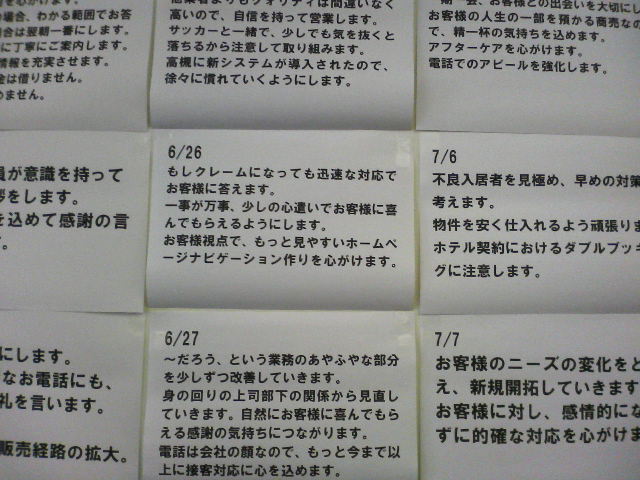 の場合、わかる範囲でお答
場合は翌朝一番にします。
に丁寧にご案内します。
情報を充実させます。
金は借りません。
めません。
高いので、自信を持って営業します。
サッカーと一緒で、少しでも気を抜くと
落ちるから注意して取り組みます。
高槻に新システムが導入されたので、
徐々に慣れていくようにします。
お客様の人生の一部を預かる商売なの
で、精一杯の気持ちを込めます。
アフターケアを心がけます。
電話でのアピールを強化します。
員が意識を持って
をします。
を込めて感謝の言
。
6/26
もしクレームになっても迅速な対応で
お客様に答えます。
一事が万事、少しの心遣いでお客様に喜
んでもらえるようにします。
お客様視点で、もっと見やすいホームペ
ージナビゲーション作りを心がけます。
7/6
不良入居者を見極め、早めの対策
考えます。
物件を安く仕入れるよう頑張りま
ホテル契約におけるダブルブッキ
グに注意します。
にします。
なお電話にも、
礼を言います。
販売経路の拡大。
6/27
～だろう、という業務のあやふやな部分
を少しずつ改善していきます。
身の回りの上司部下の関係から見直し
ていきます。自然にお客様に喜んでもら
える感謝の気持ちにつながります。
電話は会社の顔なので、もっと今まで以
上に接客対応に心を込めます。
7/7
お客様のニーズの変化をと
え、新規開拓していきます
お客様に対し、感情的にな
ずに的確な対応を心がけま